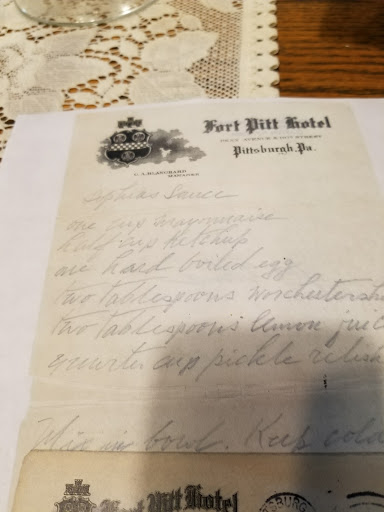 Fort Pitt Hotel
PENN AVENUE & 10TH STREET
Pittsburgh, Pa.
C. A. BLANCHARD
MANAGER
Sophias Sauce
one cup mayonnaise
half cup ketchup
one hard boiled egg
two tablespoons Worchestersh
two tablespoons lemon juic
quarter cup pickle relish
Mix in bowl. Keep cold
Fort Pitt Hotel